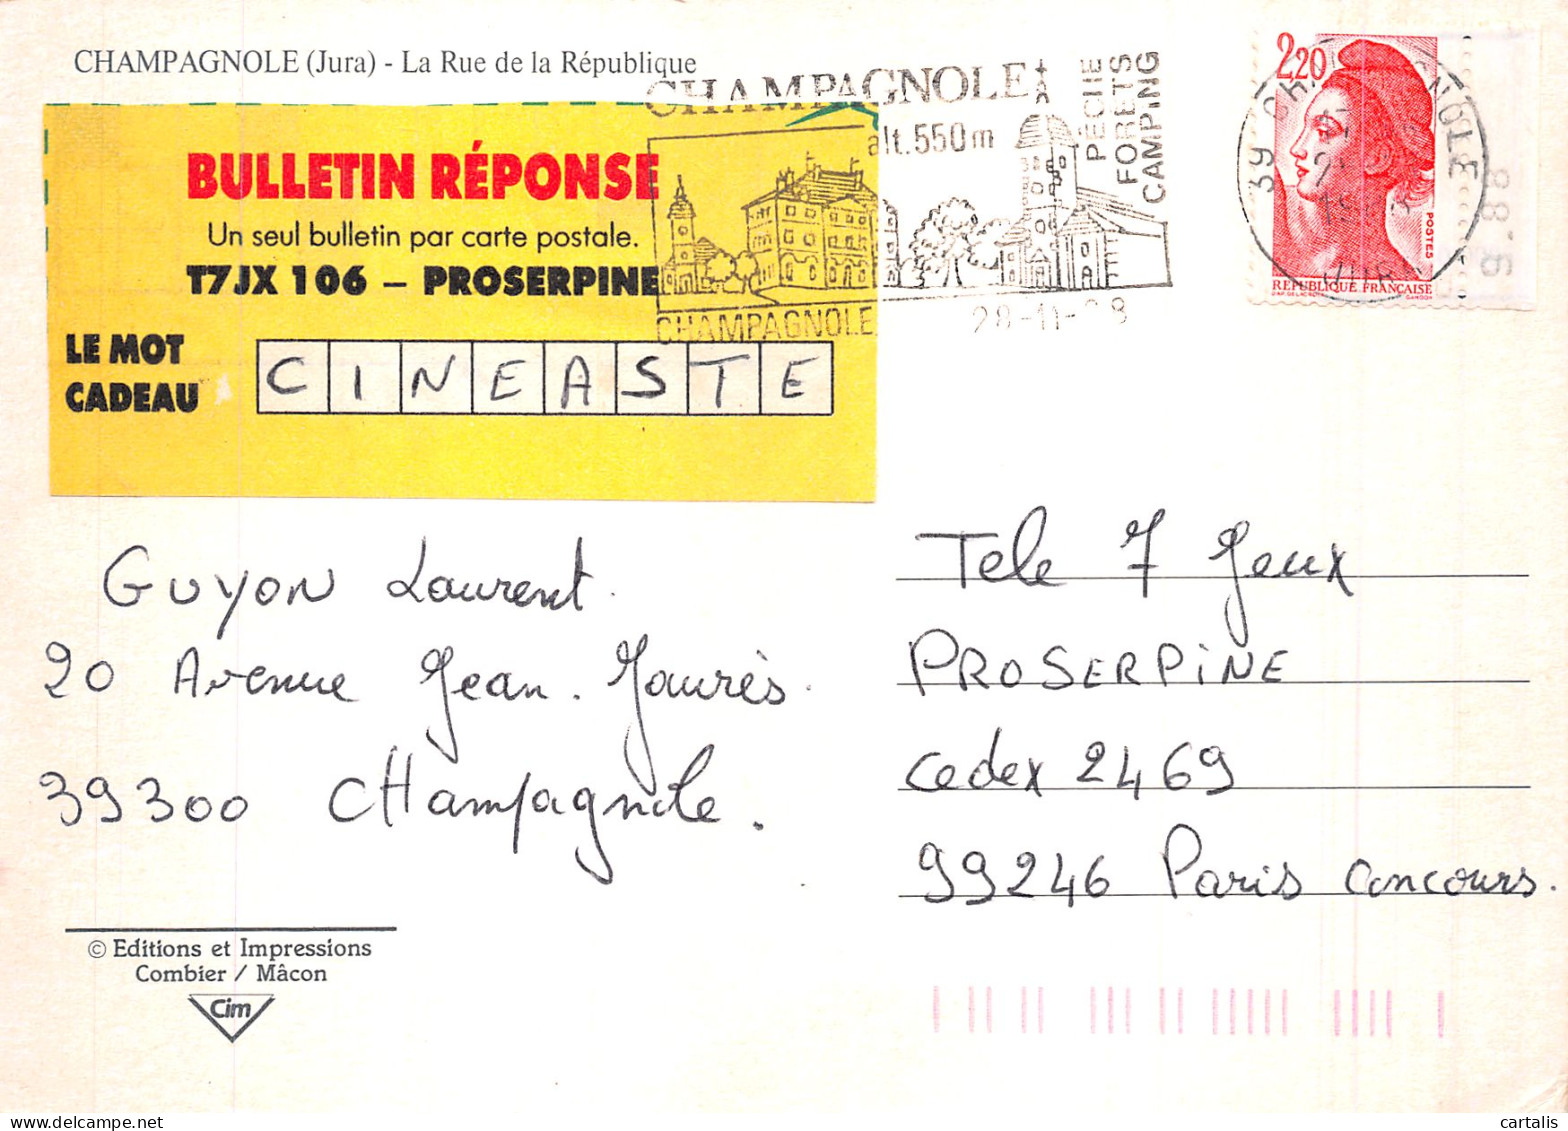 CHAMPAGNOLE (Jura) - La Rue de la République
BULLETIN RÉPONSE
Un seul bulletin par carte postale.
T7JX 106 – PROSERPINE
LE MOT
CADEAU
CINEASTE
CHAMPAGNOLE
alt. 550 m
PÊCHE
FORETS
CAMPING
CHAMPAGNOLE
28-11-
2,20
POSTES
REPUBLIQUE FRANÇAISE
GANDON
39
JURA
GUYON Laurent.
20 Avenue Jean. Jaurès.
39300 CHampagnole.
Tele 7 Jeux
PROSERPiNE
Cedex 2469
99246 Paris Concours.
© Editions et Impressions
Combier / Mâcon
Cim
cartalis